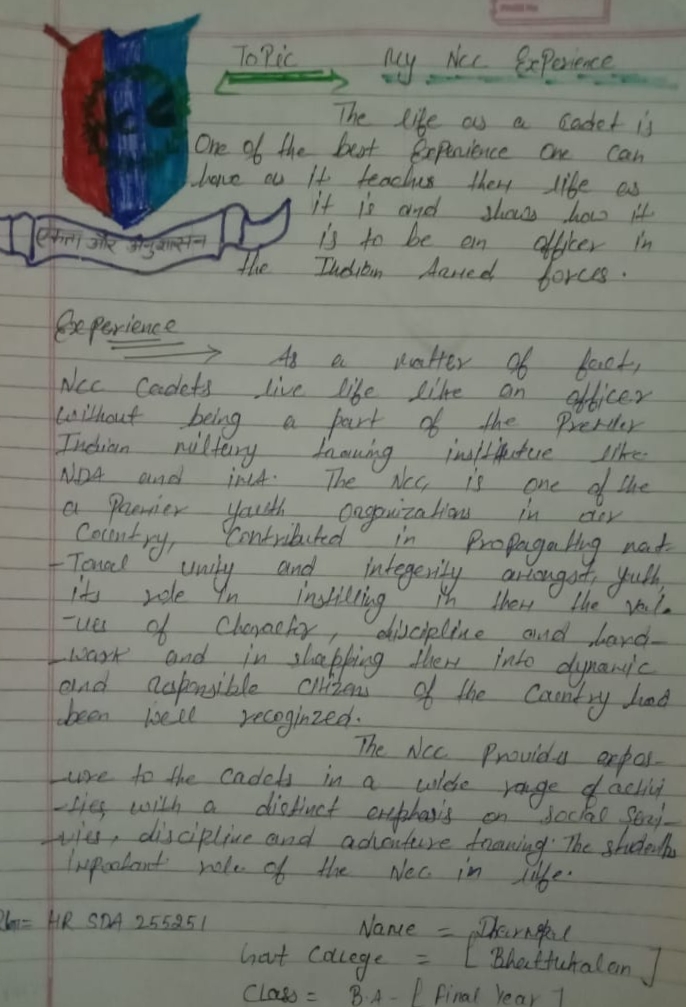 Topic My Ncc Experience
The life as a Cadet is
One of the best Experience one can
have as it teaches them life as
it is and shows how it
एकता और अनुशासन
is to be an officer in
the Indian Aamed forces.
Experience
As a matter of fact,
Ncc Cadets live life like an officer
without being a part of the Premier
Indian miltery traning institutue like
NDA and INA. The Ncc, is one of the
a Pamier youth Organizations in our
Country, Contributed in Propagating nat-
-Tonal unity and integerity amongst, youth,
its role in instilling in them the val-
-ues of Character, discipline and hard-
-work and in shapping them into dynamic
and responsible citizens of the Country had
been well recoginzed.
The Ncc Provides expos-
-ure to the cadets in a wide range of activi
-ties, with a distinct emphasis on social Servi-
-vies, discipline and adventure traning. The students
Impoatant role of the Ncc in life.
HR SDA 255251
Name =
Govt College = [Bhattukalan]
Class = B.A - [Final Year]